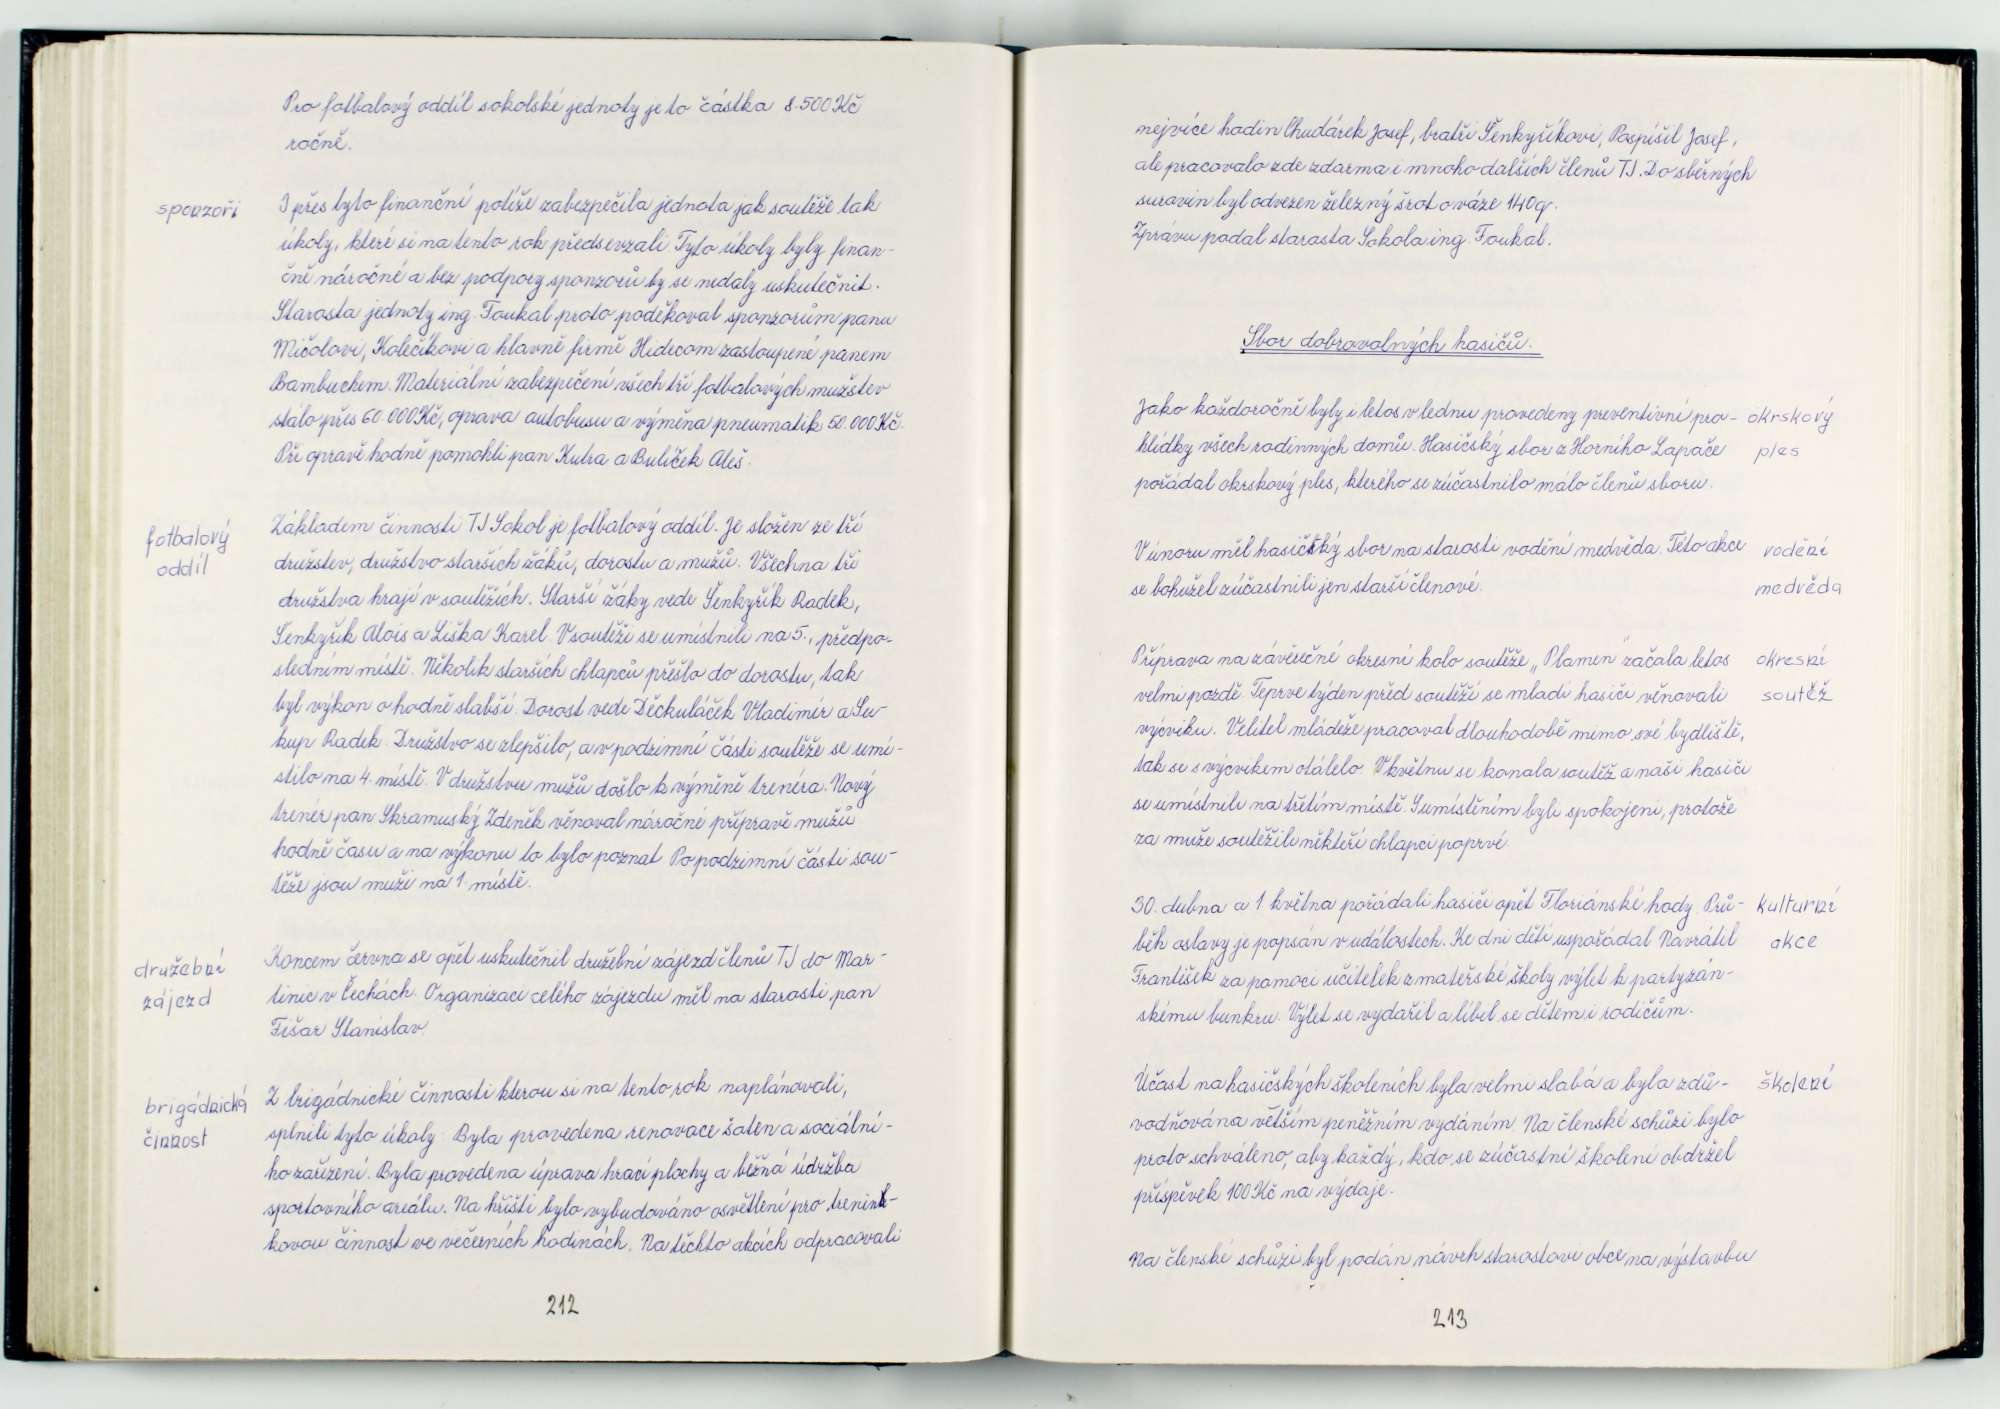 Pro fotbalový oddíl sokolské jednoty je to částka 8.500 Kč
ročně.
sponzoři
I přes tyto finanční potíže zabezpečila jednota jak soutěže tak
úkoly, které si na tento rok předsevzali Tyto úkoly byly finan-
čně náročné a bez podpory sponzorů by se nedaly uskutečnit.
Starosta jednoty ing. Foukal proto poděkoval sponzorům panu
Mičolovi, Kolečíkovi a hlavně firmě Hidecom zastoupené panem
Bambuchem. Materiální zabezpečení všech tří fotbalových mužstev
stálo přes 60.000 Kč, oprava autobusu a výměna pneumatik 50.000 Kč.
Při opravě hodně pomohli pan Kutra a Bulíček Aleš.
fotbalový
oddíl
Základem činnosti TJ Sokol je fotbalový oddíl. Je složen ze tří
družstev, družstvo starších žáků, dorostu a mužů. Všechna tři
družstva hrají v soutěžích. Starší žáky vede Šenkyřík Radek,
Šenkyřík Alois a Liška Karel. V soutěži se umístnili na 5., předpo-
sledním místě. Několik starších chlapců přešlo do dorostu, tak
byl výkon o hodně slabší. Dorost vede Děckuláček Vladimír a Su-
kup Radek. Družstvo se zlepšilo, a v podzimní části soutěže se umí-
stilo na 4. místě. V družstvu mužů došlo k výměně trenéra. Nový
trenér pan Skramuský Zdeněk věnoval náročné přípravě mužů
hodně času a na výkonu to bylo poznat. Po podzimní části sou-
těže jsou muži na 1. místě.
družební
zájezd
Koncem června se opět uskutečnil družební zájezd členů TJ do Mar-
tinic v Čechách. Organizaci celého zájezdu měl na starosti pan
Fišar Stanislav.
brigádnická
činnost
Z brigádnické činnosti kterou si na tento rok naplánovali,
splnili tyto úkoly: Byla provedena renovace šaten a sociální-
ho zařízení. Byla provedena úprava hrací plochy a běžná údržba
sportovního areálu. Na hřišti bylo vybudováno osvětlení pro trenink-
kovou činnost ve večerních hodinách. Na těchto akcích odpracovali
212
nejvíce hodin Chudárek Josef, bratři Šenkyříkovi, Pospíšil Josef,
ale pracovalo zde zdarma i mnoho dalších členů TJ. Do sběrných
surovin byl odvezen železný šrot o váze 140q.
Zprávu podal starosta Sokola ing. Foukal.
Sbor dobrovolných hasičů.
Jako každoročně byly i letos v lednu provedeny preventivní pro-
hlídky všech rodinných domů. Hasičský sbor z Horního Lapače
pořádal okrskový ples, kterého se zúčastnilo málo členů sboru.
okrskový
ples
V únoru měl hasičský sbor na starosti vodění medvěda. Této akce
se bohužel zúčastnili jen starší členové.
vodění
medvěda
Příprava na závěrečné okresní kolo soutěže „Plamen" začala letos
velmi pozdě. Teprve týden před soutěží se mladí hasiči věnovali
výcviku. Velitel mládeže pracoval dlouhodobě mimo své bydliště,
tak se s výcvikem otálelo. V květnu se konala soutěž a naši hasiči
se umístnili na třetím místě. S umístěním byli spokojeni, protože
za muže soutěžili někteří chlapci poprvé.
okresní
soutěž
30. dubna a 1. května pořádali hasiči opět Floriánské hody. Prů-
běh oslavy je popsán v událostech. Ke dni dětí uspořádal Navrátil
František za pomoci učitelek z mateřské školy výlet k partyzán-
skému bunkru. Výlet se vydařil a líbil se dětem i rodičům.
kulturní
akce
Účast na hasičských školeních byla velmi slabá a byla zdů-
vodňována větším peněžním vydáním. Na členské schůzi bylo
proto schváleno, aby každý, kdo se zúčastní školení obdržel
příspěvek 100 Kč na výdaje.
školení
Na členské schůzi byl podán návrh starostovi obce na výstavbu
213